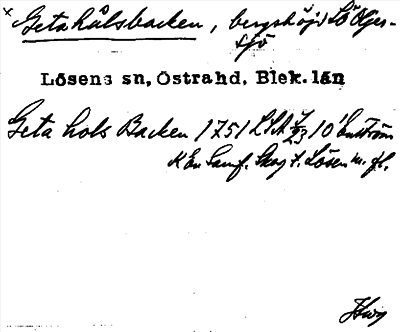 × Getahålsbacken, bergshöjd Lö Oljer-
sjö
Lösens sn, Östra hd, Blek. län
Geta hols Backen 1751 LSA 10 Enström
Kån Samf. Skog t. Lösen m. fl.